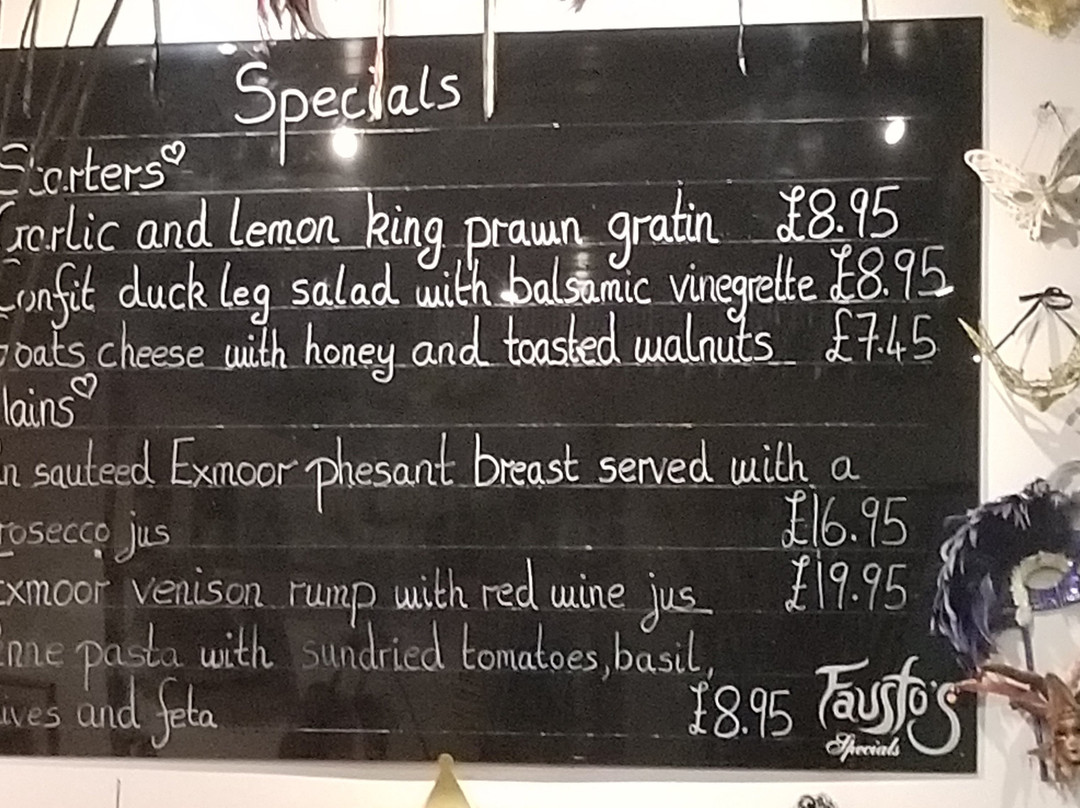 Specials
Starters♡
Garlic and lemon king prawn gratin £8.95
Confit duck leg salad with balsamic vinegrette £8.95
oats cheese with honey and toasted walnuts £7.45
lains♡
n sauteed Exmoor phesant breast served with a
rosecco jus £16.95
Exmoor venison rump with red wine jus £19.95
enne pasta with sundried tomatoes, basil,
ives and feta £8.95
Fausto's
Specials